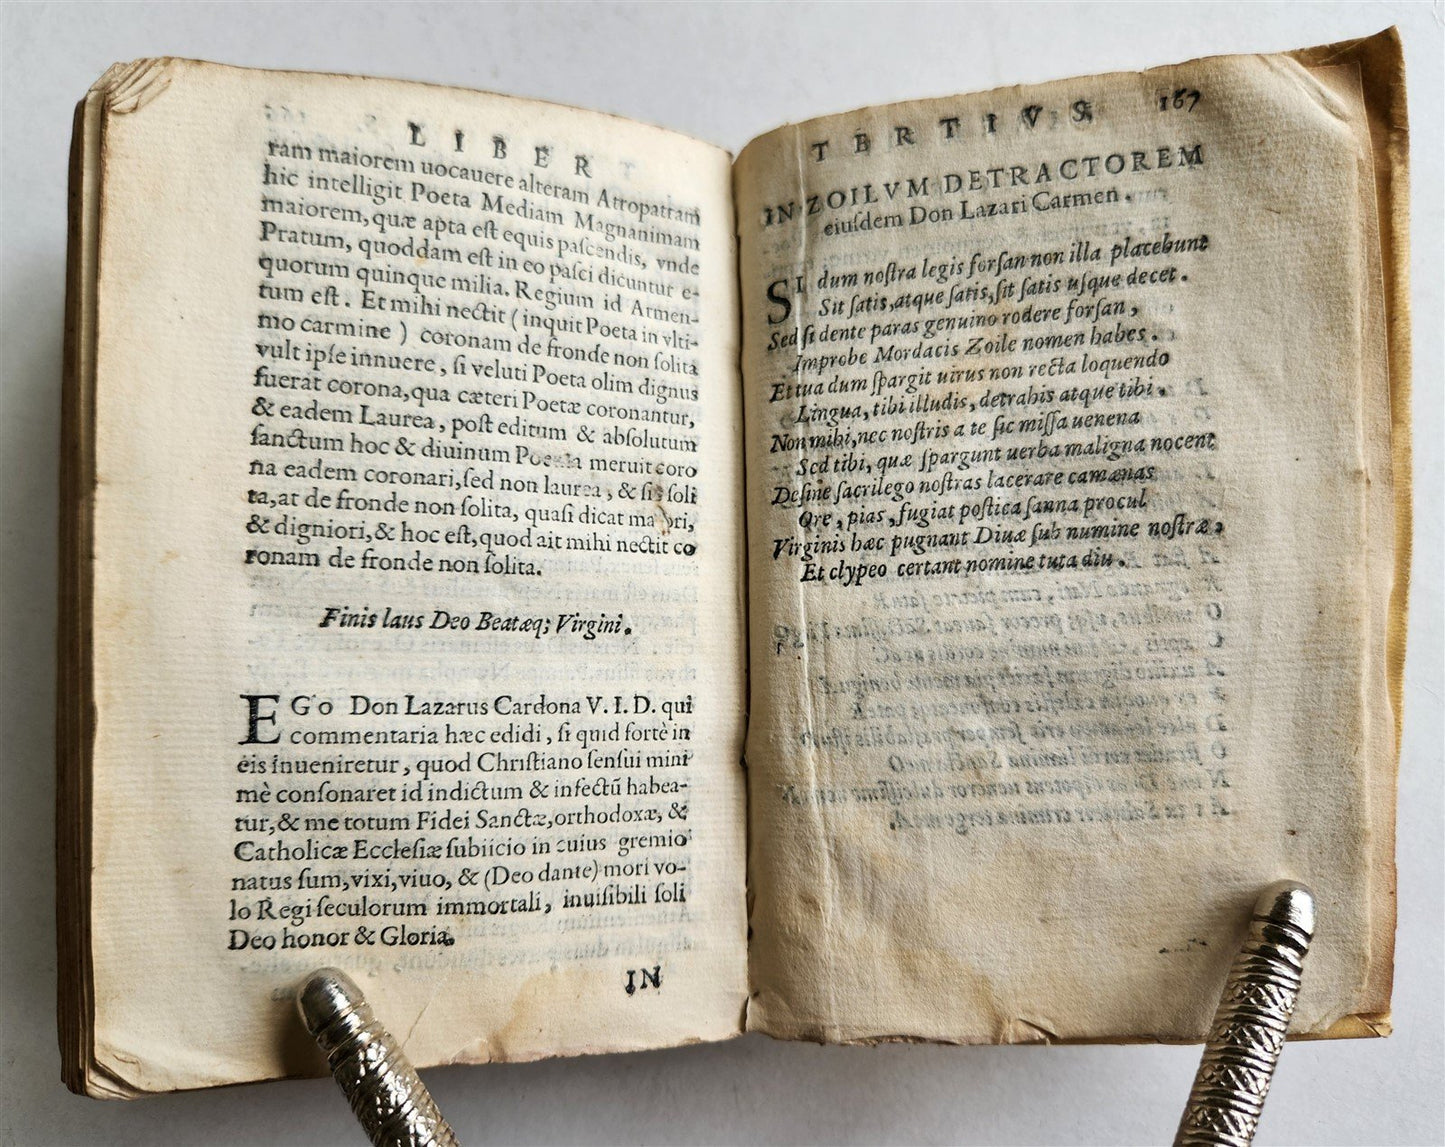 LIBER
ram maiorem uocauere alteram Atropatram
hic intelligit Poeta Mediam Magnanimam
maiorem, quæ apta est equis pascendis, vnde
Pratum, quoddam est in eo pasci dicuntur e-
quorum quinque milia. Regium id Armen-
tum est. Et mihi nectit (inquit Poeta in vlti-
mo carmine) coronam de fronde non solita
vult ipse innuere, si veluti Poeta olim dignus
fuerat corona, qua cæteri Poetæ coronantur,
& eadem Laurea, post editum & absolutum
sanctum hoc & diuinum meruit coro
na eadem coronari, sed non laurea, & soli
ta, at de fronde non solita, quasi dicat
& digniori, & hoc est, quod ait mihi nectit co
ronam de fronde non solita.
Finis laus Deo Beatæq; Virgini.
EGo Don Lazarus Cardona V. I. D. qui
commentaria hæc edidi, si quid fortè in
eis inueniretur, quod Christiano sensui mini
mè consonaret id indictum & infectū habea-
tur, & me totum Fidei Sanctæ, orthodoxæ, &
Catholicæ Ecclesiæ subiicio in cuius gremio
natus sum, vixi, viuo, & (Deo dante) mori vo-
lo Regi seculorum immortali, inuisibili soli
Deo honor & Gloria.
IN
TERTIVS 167
IN ZOILVM DETRACTOREM
eiusdem Don Lazari Carmen.
SI dum nostra legis forsan non illa placebunt
Sit satis, atque satis, sit satis usque decet.
Sed si dente paras genuino rodere forsan,
Improbe Mordacis Zoile nomen habes.
Et tua dum spargit uirus non recta loquendo
Lingua, tibi illudis, detrahis atque tibi.
Non mihi, nec nostris a te sic missa uenena
Sed tibi, quæ spargunt uerba maligna nocent
Desine sacrilego nostras lacerare camænas
Ore, pias, fugiat postica sanna procul
Virginis hæc pugnant Diuæ sub numine nostræ,
Et clypeo certant nomine tuta diu.